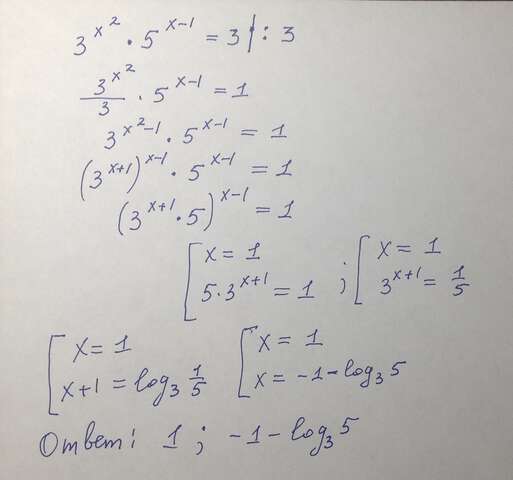 3^{x^2} · 5^{x-1} = 3 | : 3
\frac{3^{x^2}}{3} · 5^{x-1} = 1
3^{x^2-1} · 5^{x-1} = 1
(3^{x+1})^{x-1} · 5^{x-1} = 1
(3^{x+1} · 5)^{x-1} = 1
[ x = 1 ; [ x = 1
5·3^{x+1} = 1 3^{x+1} = \frac{1}{5}
[ x = 1 [ x = 1
x+1 = log_3 \frac{1}{5} x = -1 - log_3 5
Ответ: 1 ; -1 - log_3 5